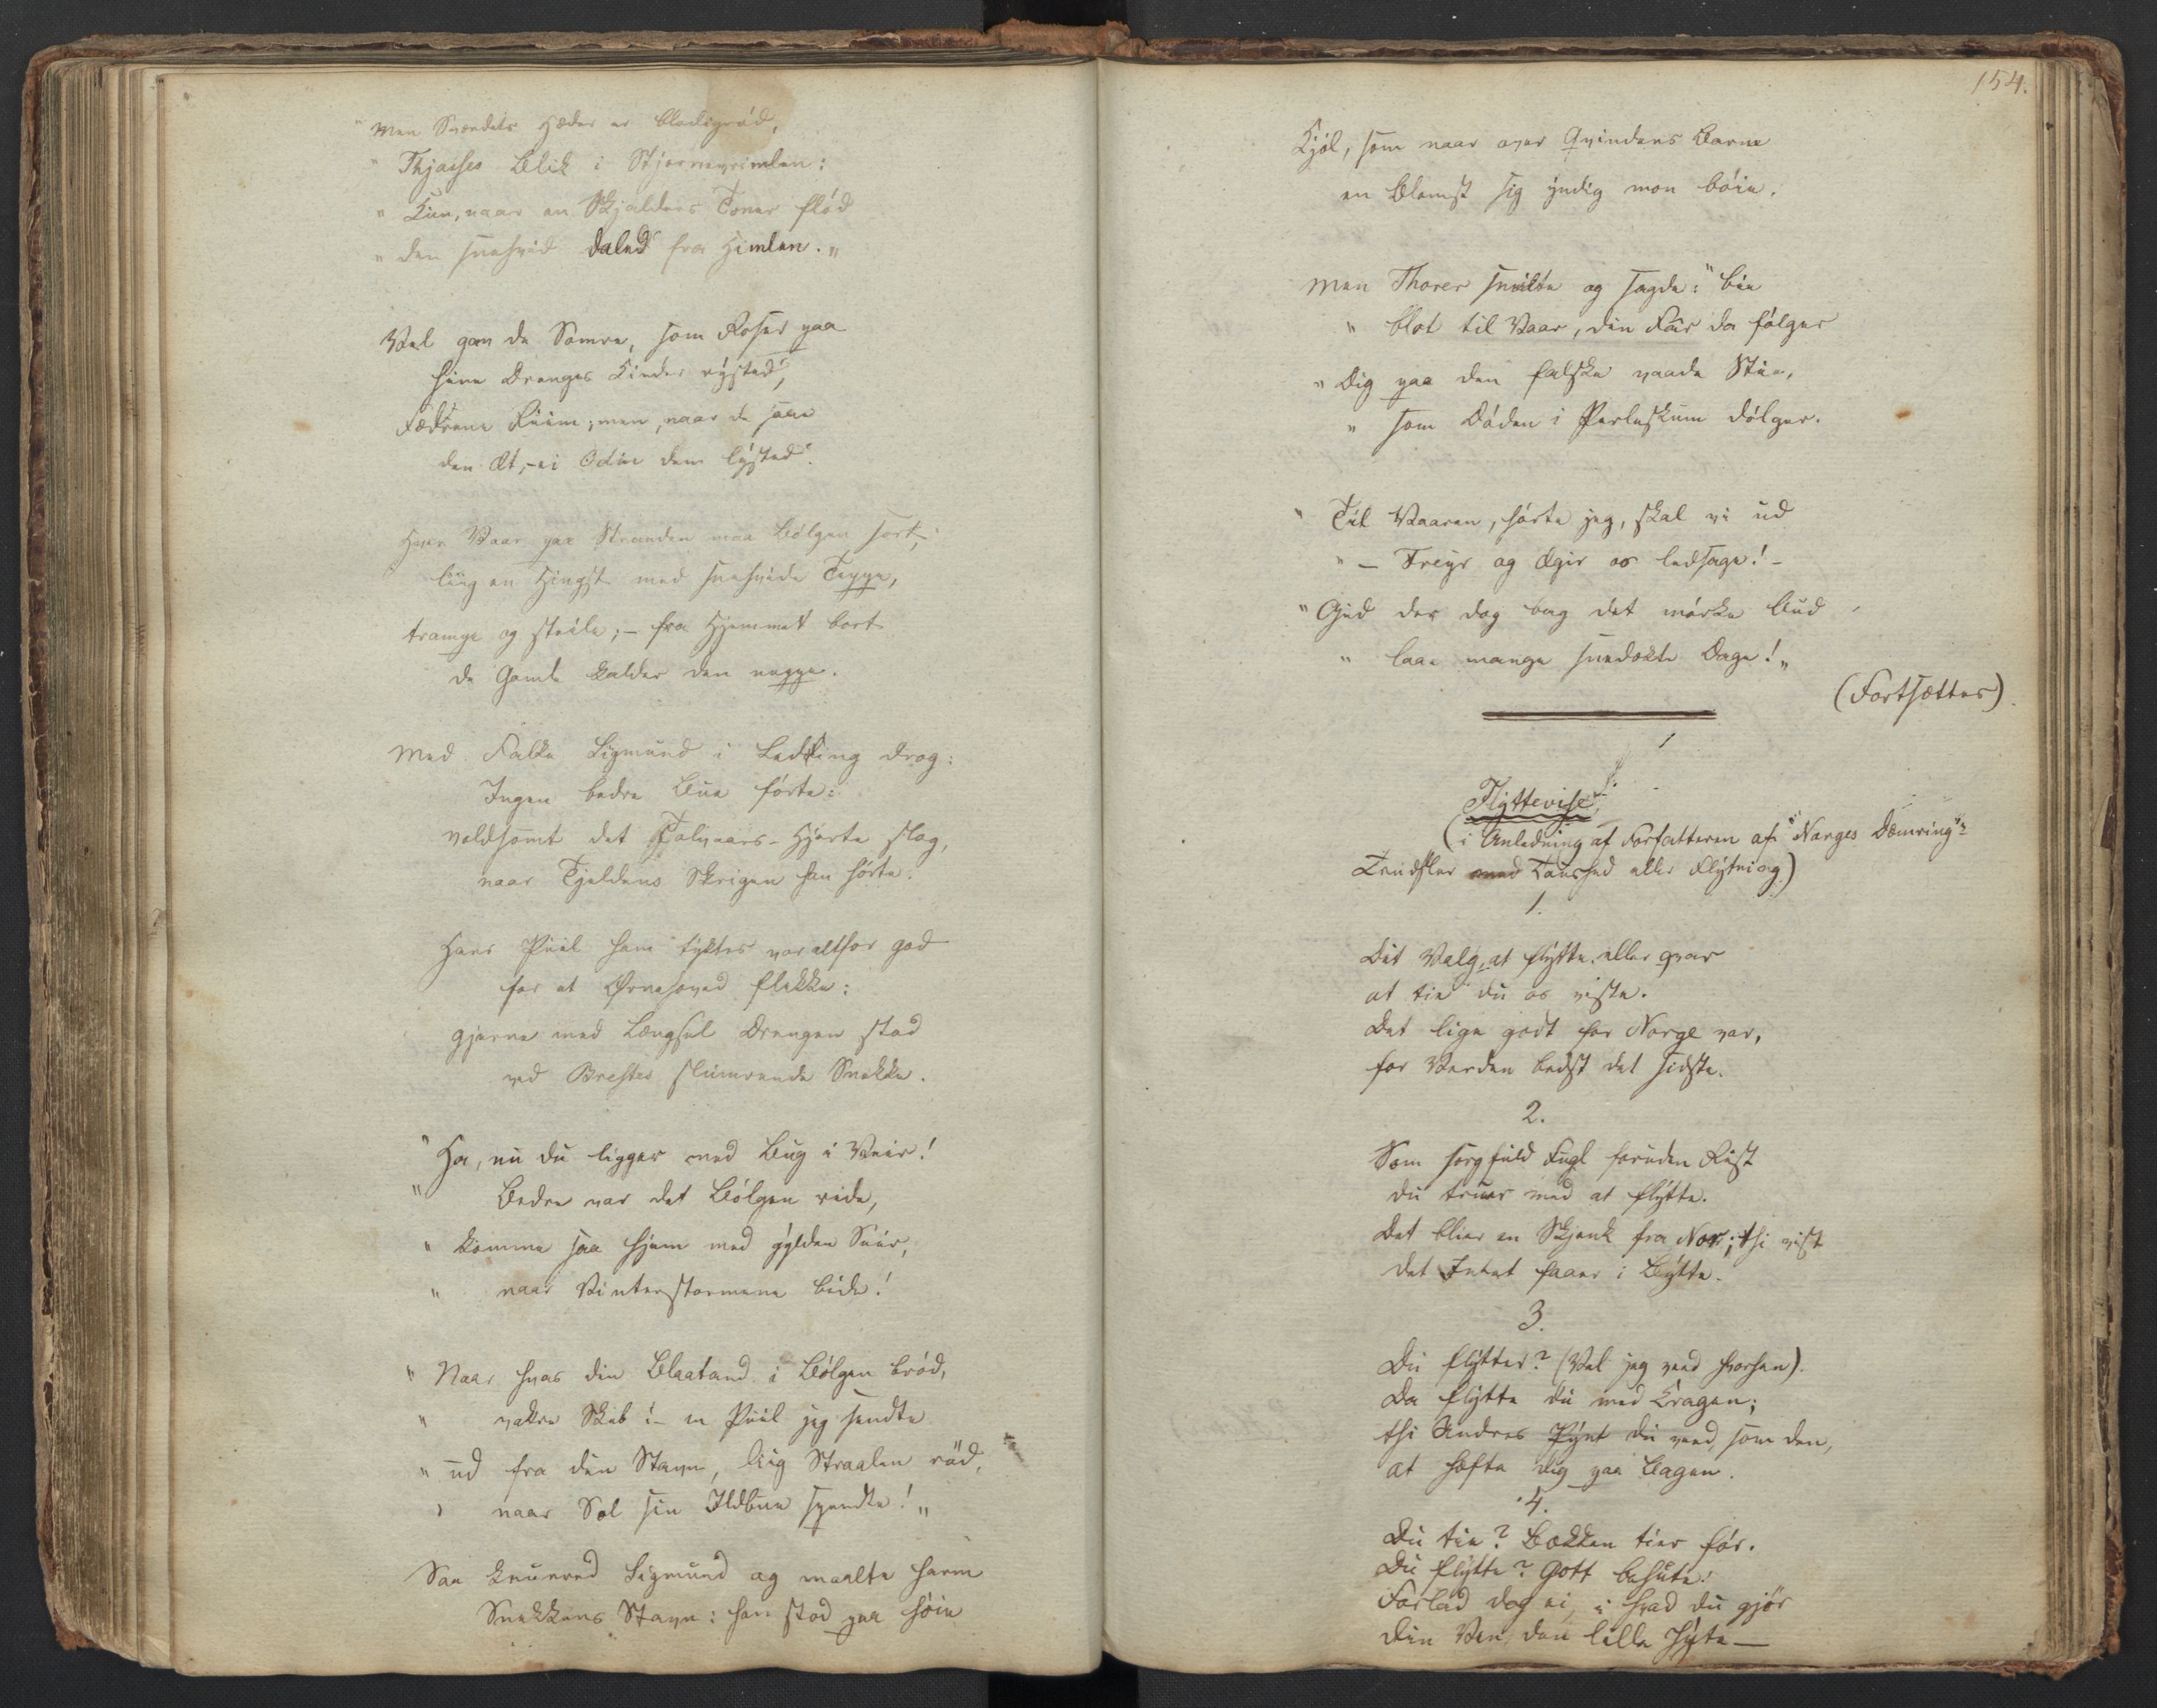 "Men Sværdets Hæder er blodigrød,
" Thjasses Blik i Stjernevrimlen:
" Kun, naar en Skjalders Toner flød
" den sneehvid daled' fra Himlen."
Vel gav de Somre, som Roser paa
sine Drenges Kinder rysted',
Fædrene Ruum; men, naar de saae
den Æt, - ei Odin dem lysted'.
Hver Vaar paa Stranden maa Bølgen sort,
liig en Hingst med sneehvide Toppe,
trampe og steile; - fra Hjemmet bort
de Gamle kalder den noppe.
Med Falke Sigmund i Ledding drog:
Ingen bedre Bue førte:
voldsomt det Tolvaars-Hjerte slog,
naar Tjeldens Skrigen han hørte.
Hans Piil ham tyktes var altfor god
for at Ørnehoved flekke:
gjerne med Længsel Drengen stod
ved Brestes slumrende Snekke.
"Ha, nu du ligger med Bug i Veir!
" Bedre var det Bølgen ride,
" komme saa hjem med gylden Seir,
" naar Vinterstormene bide!
" Naar hvas din Blaatand i Bølgen brød,
" vakre Skib! - en Piil jeg sendte
" ud fra din Stavn, liig Straalen rød,
" naar Sol sin Ildbue spendte!"
Saa knurred Sigmund og maalte harm
Snekkens Stavn: han stod paa høie
154.
Kjøl, som naar over Qvindens Barm
en Blomst sig yndig mon bøie.
Men Thorer smilte og sagde: "bie
" blot til Vaar, din Faer da følger
" Dig paa den falske vaade Stie,
" som Døden i Perleskum dølger.
" Til Vaaren, hørte jeg, skal vi ud
" - Freyr og Ægir os ledsage! -
" Gid der dog bag det mørke Bud
" laae mange snedækte Dage!"
(Fortsættes)
Flyttevise
(i Anledning af Forfatteren af "Norges Dæmring"s
Trudsler med Taushed eller Flytning)
1.
Dit Valg, at flytte eller qvær
at tie du os viste.
Det lige godt for Norge var,
for Verden bedst det sidste.
2.
Som sorgfuld Fugl foruden Rist
du truer med at flytte.
Det blier en Skjenk fra Nor; thi vist
det Intet faaer i Bytte.
3.
Du flytter? (Vel jeg veed hvorhen).
Da flytte du med Kragen;
thi Andres Pynt du veed, som den,
at hefte dig paa Bagen.
4.
Du tie? Bækken tier før.
Du flytte? Gott behüte!
Forlad dog ei, i hvad du gjør
din Ven, den lille Hyte —